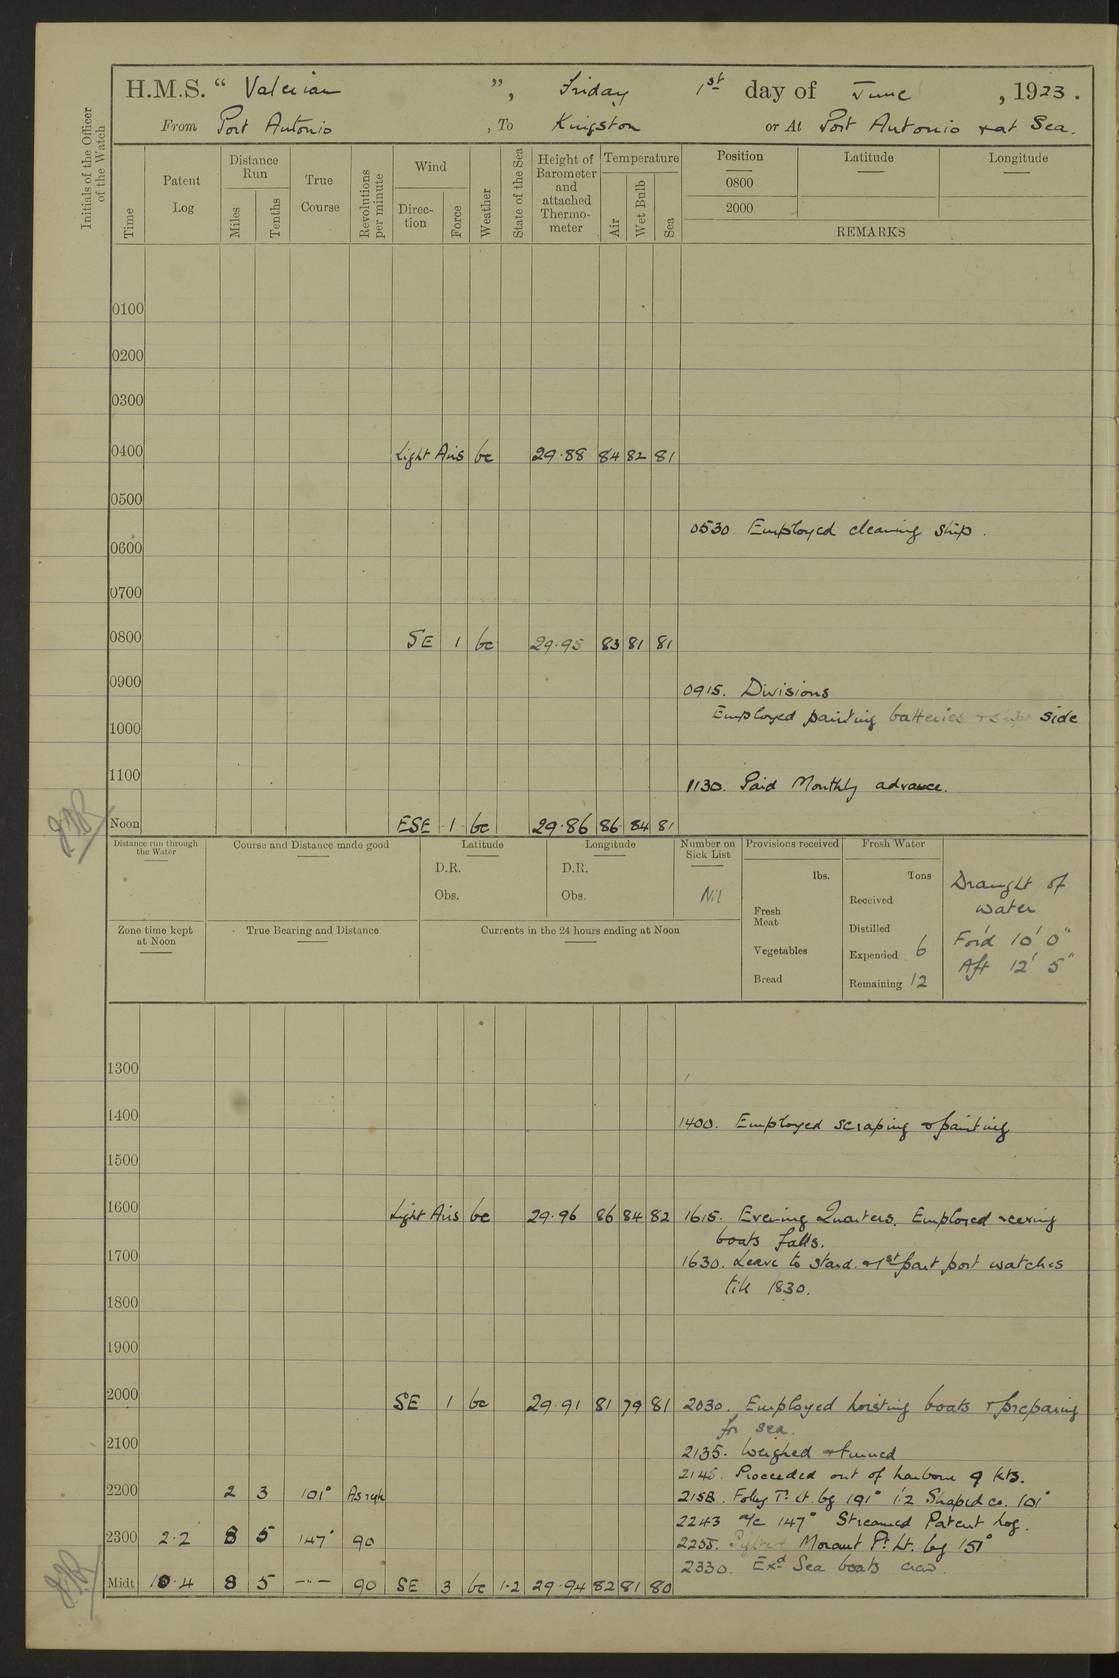 H.M.S. “ Valerian ”, Friday 1st day of June, 1923.
From Port Antonio, To Kingston or At Port Antonio & at Sea.
Initials of the Officer of the Watch
Time
Patent Log
Distance Run
Miles
Tenths
True Course
Revolutions per minute
Wind
Direction
Force
Weather
State of the Sea
Height of Barometer and attached Thermometer
Temperature
Air
Wet Bulb
Sea
Position
0800
2000
Latitude
Longitude
REMARKS
0100
0200
0300
0400 Light Airs bc 29.88 84 82 81
0500
0530. Employed cleaning ship.
0600
0700
0800 SE 1 bc 29.95 83 81 81
0900
0915. Divisions
Employed painting batteries & side
1000
1100
1130. Paid Monthly advance.
Noon ESE 1 bc 29.86 86 84 81
Distance run through the Water
Course and Distance made good
Latitude
D.R.
Obs.
Longitude
D.R.
Obs.
Number on Sick List
Nil
Provisions received
lbs.
Fresh Meat
Vegetables
Bread
Fresh Water
Tons
Received
Distilled
Expended 6
Remaining 12
Draught of
water
For'd 10' 0"
Aft 12' 5"
Zone time kept at Noon
True Bearing and Distance
Currents in the 24 hours ending at Noon
1300
1400
1400. Employed scraping & painting
1500
1600 Light Airs bc 29.96 86 84 82 1615. Evening Quarters. Employed reeving
boats falls.
1700
1630. Leave to stand. & 1st part port watches
till 1830.
1800
1900
2000 SE 1 bc 29.91 81 79 81 2030. Employed hoisting boats & preparing
for sea.
2100
2135. Weighed & turned
2145. Proceeded out of harbour 9 kts.
2200 2 3 101° As req 2158. Folly Pt. Lt. bg 191° 1.2 Shaped co. 101°
2243 a/c 147° Streamed Patent Log.
2300 2.2 8 5 147° 90 2255. Sighted Morant Pt. Lt. bg 151°
2330. Exd Sea boats crew.
Midt 10.4 8 5 -"- 90 SE 3 bc 1.2 29.94 82 81 80